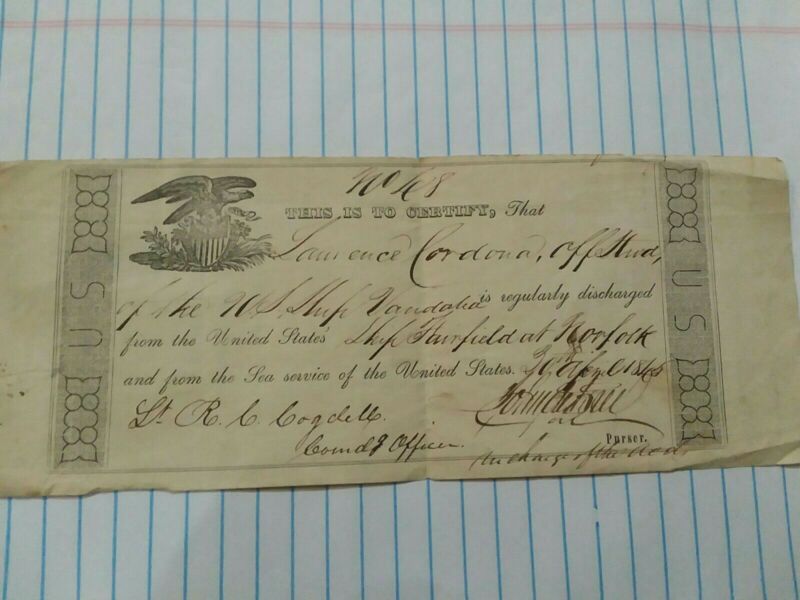 No 168
THIS IS TO CERTIFY, That
Lawrence Cordona, Off Stwd,
of the U.S. Ship Vandalia is regularly discharged
from the United States' Ship Fairfield at Norfolk
and from the Sea service of the United States.
Lt R. C. Cogdell
Comdg Officer.
Purser.
In charge of the
U S
U S